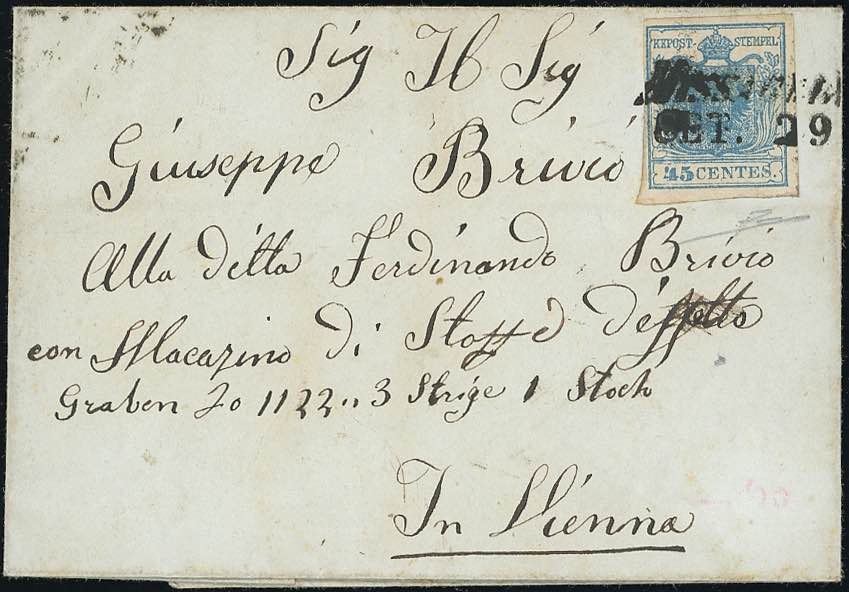 Sig Il Sig
Giuseppe Brivio
Alla ditta Ferdinando Brivio
con Macazino di Stoffe d
Graben No 1122 " 3 Stige 1 Stock
In Vienna
KKPOST-STEMPEL
45 CENTES.
SET. 29